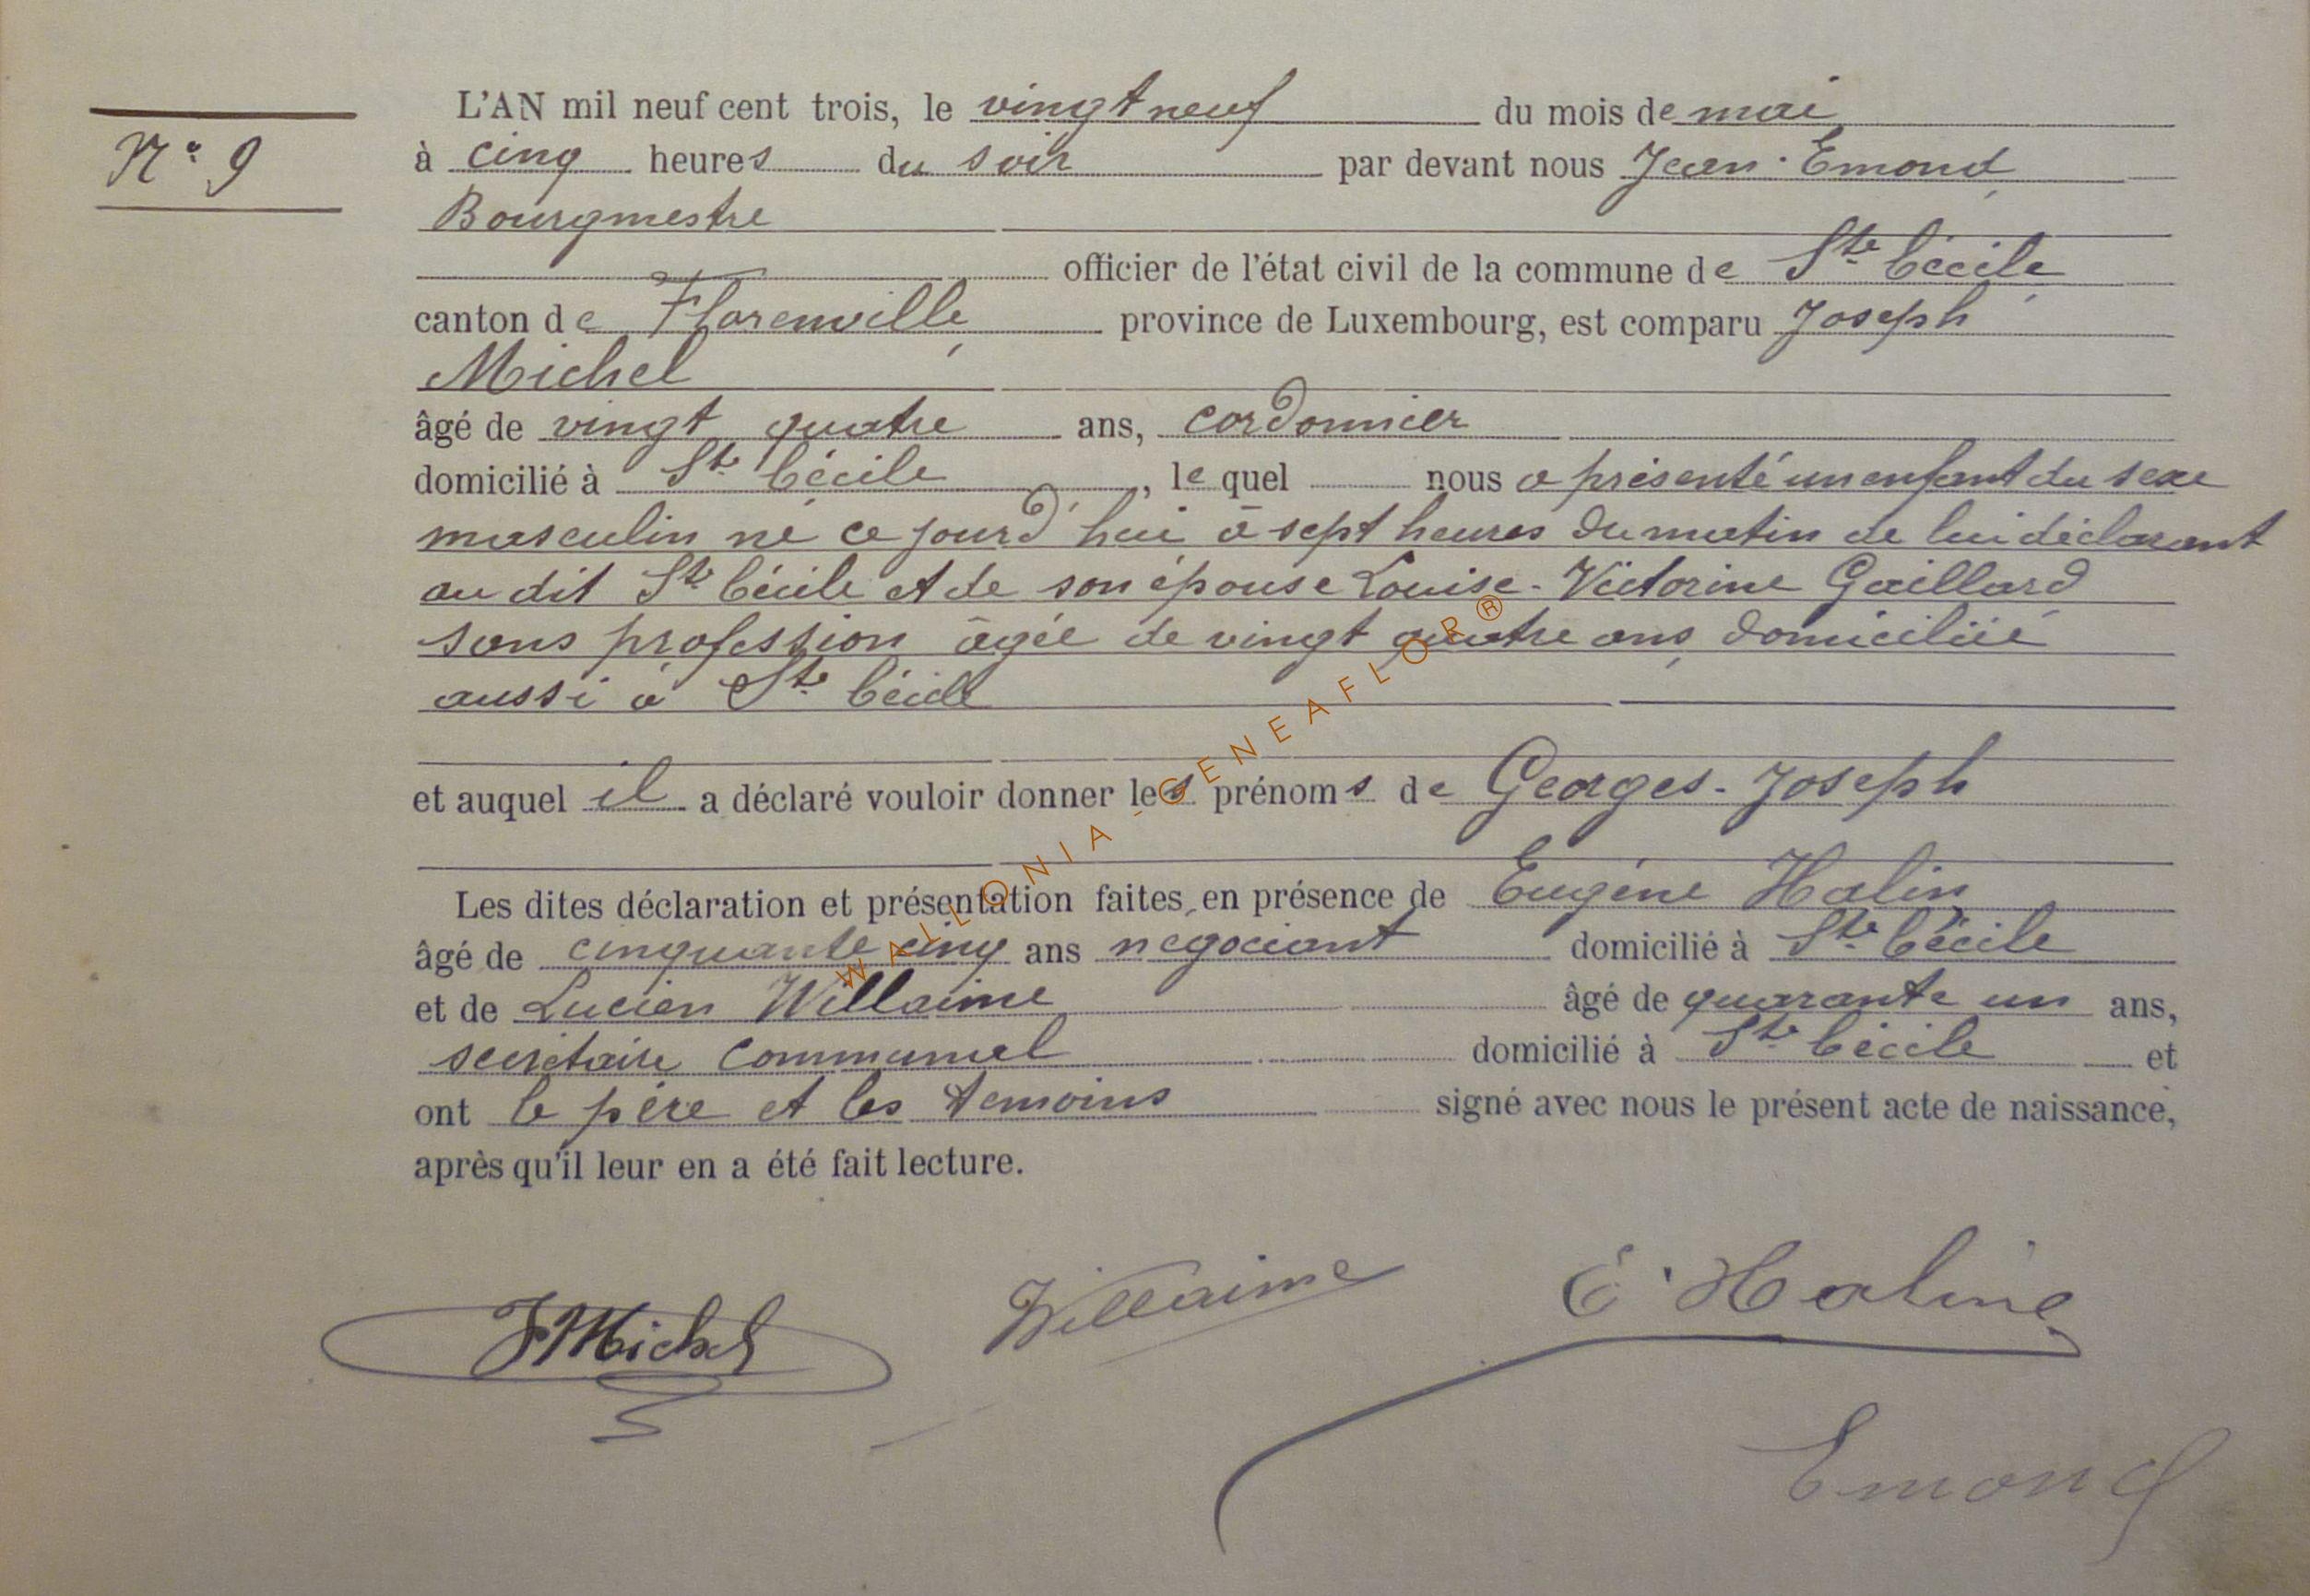 N° 9
L'AN mil neuf cent trois, le vingt neuf du mois de mai
à cinq heures du soir par devant nous Jean Emond,
Bourgmestre
officier de l'état civil de la commune de Ste Cécile,
canton de Florenville, province de Luxembourg, est comparu Joseph
Michel
âgé de vingt quatre ans, cordonnier
domicilié à Ste Cécile, lequel nous a présenté un enfant du sexe
masculin né ce jourd'hui à sept heures du matin de lui déclarant
au dit Ste Cécile et de son épouse Louise-Victorine Gaillard
sans profession âgée de vingt quatre ans, domiciliée
aussi à Ste Cécile
et auquel il a déclaré vouloir donner les prénoms de Georges-Joseph
Les dites déclaration et présentation faites en présence de Eugène Halin,
âgé de cinquante cinq ans négociant domicilié à Ste Cécile
et de Lucien Willaime âgé de quarante un ans,
secrétaire communal domicilié à Ste Cécile et
ont le père et les temoins signé avec nous le présent acte de naissance,
après qu'il leur en a été fait lecture.
JMichel Willaime E. Haline
Emond
WALLONIA-GENEAFLOR®